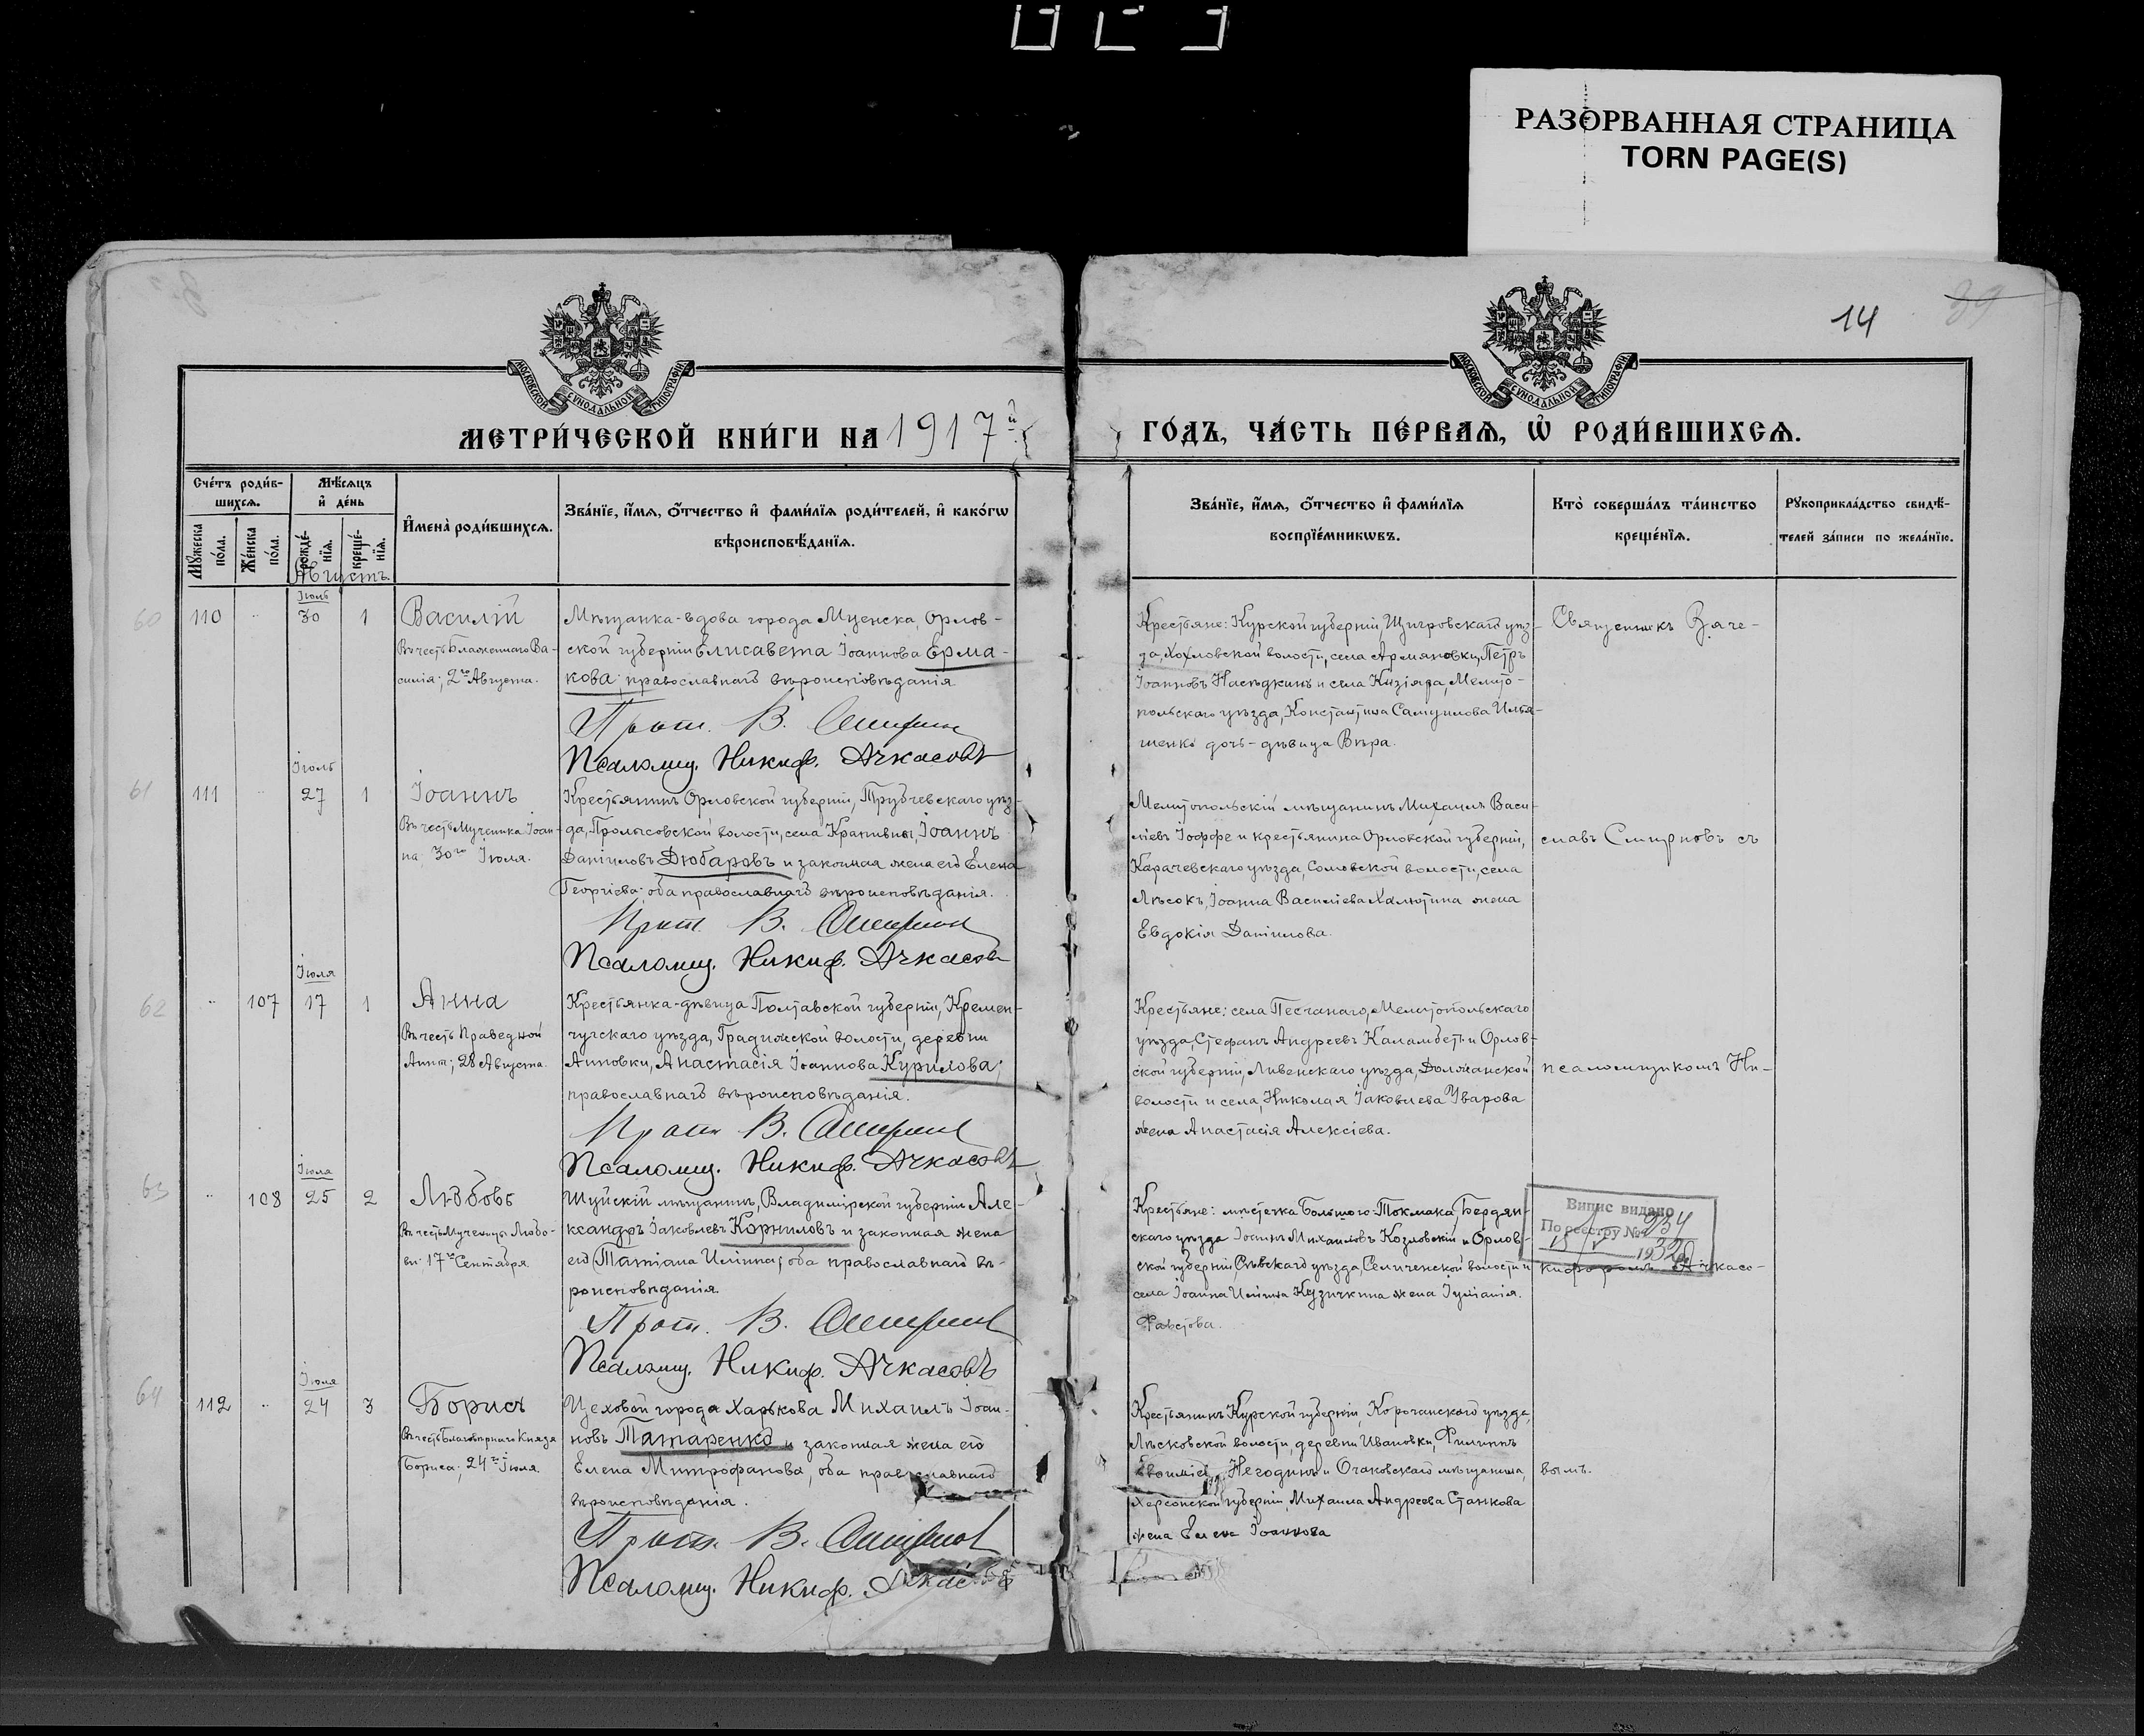 РАЗОРВАННАЯ СТРАНИЦА
TORN PAGE(S)
14
МОСКОВСКОЙ СѴНОДАЛЬНОЙ ТИПОГРАФІИ
МОСКОВСКОЙ СѴНОДАЛЬНОЙ ТИПОГРАФІИ
МЕТРИ́ЧЕСКОЙ КНИ́ГИ НА 1917й
ГО́ДЪ, ЧА́СТЬ ПЕ́РВАѦ, Ѡ҆ РОДИ́ВШИХСѦ.
Сче́тъ роди́в-
шихсѧ.
Мѣ́сѧцъ
и҆ де́нь
Мꙋ́жеска по́ла.
Же́нска по́ла.
рожде́-нїѧ.
креще́-нїѧ.
И҆мена̀ роди́вшихсѧ.
Зва́нїе, и҆́мѧ, ѻ҆́тчество и҆ фами́лїѧ роди́телей, и҆ како́гѡ
вѣроисповѣ́данїѧ.
Зва́нїе, и҆́мѧ, ѻ҆́тчество и҆ фами́лїѧ
воспрїе́мникѡвъ.
Кто̀ соверша́лъ та́инство
креще́нїѧ.
Рꙋкоприкла́дство свидѣ́-
телей за́писи по жела́нїю.
Августъ.
Іюль
60 110 " 30 1 Василій
Въ честь Блаженнаго Ва-
силія; 2го Августа.
Мѣщанка-вдова города Мценска, Орлов-
ской губерніи Елисавета Іоаннова Ерма-
кова; православнаго вѣроисповѣданія
Прот. В. Смирнов
Псаломщ. Никиф. Ачкасовъ
Крестьяне: Курской губерніи, Щигровскаго уѣз-
да, Хохловской волости, села Армяновки, Петръ
Іоанновъ Насѣдкинъ и села Кизіяра, Мелито-
польскаго уѣзда, Константина Самуилова Илья-
шенко дочь-дѣвица Вѣра.
Священникъ Вяче-
Іюль
61 111 " 27 1 Іоаннъ
Въ честь Мученика Іоан-
на; 30го Іюля.
Крестьянинъ Орловской губерніи, Трубчевскаго уѣз-
да, Пролысовской волости, села Крапивны, Іоаннъ
Даніиловъ Дюбаровъ и законная жена его Елена
Георгіева; оба православнаго вѣроисповѣданія.
Прот. В. Смирнов
Псаломщ. Никиф. Ачкасов
Мелитопольскій мѣщанинъ Михаилъ Васи-
ліевъ Іоффе и крестьянина Орловской губерніи,
Карачевскаго уѣзда, Сомовской волости, села
Лѣсокъ, Іоанна Василіева Халютина жена
Евдокія Даніилова.
славъ Смирновъ съ
Іюля
62 " 107 17 1 Анна
Въ честь Праведной
Анны; 28 Августа.
Крестьянка-дѣвица Полтавской губерніи, Кремен-
чугскаго уѣзда, Градижской волости, деревни
Анновки, Анастасія Іоаннова Курилова;
православнаго вѣроисповѣданія.
Прот. В. Смирнов
Псаломщ. Никиф. Ачкасовъ
Крестьяне: села Песчанаго, Мелитопольскаго
уѣзда, Стефанъ Андреевъ Каламбетъ и Орлов-
ской губерніи, Ливенскаго уѣзда, Должанской
волости и села, Николая Іаковлева Уварова
жена Анастасія Алексіева.
псаломщикомъ Ни-
Іюля
63 " 108 25 2 Любовь
Въ честь Мученицы Любо-
ви; 17го Сентября.
Шуйскій мѣщанинъ, Владимірской губерніи Але-
ксандръ Іаковлевъ Корниловъ и законная жена
его Татіана Иліина; оба православнаго вѣ-
роисповѣданія.
Прот. В. Смирнов
Псаломщ. Никиф. Ачкасовъ
Крестьяне: мѣстечка Большого-Токмака, Бердян-
скаго уѣзда Іоаннъ Михаиловъ Козловскій и Орлов-
ской губерніи, Сѣвскаго уѣзда, Селиченской волости и
села Іоанна Иліина Кузичкина жена Іуліанія.
Фавстова.
Випис видано
По реєстру № 234
15/V 1932
кифоромъ Ачкасо-
Іюля
64 112 " 24 3 Борисъ
Въ честь Благовѣрнаго Князя
Бориса; 24го Іюля.
Цеховой города Харькова Михаилъ Іоан-
новъ Татаренко и законная жена его
Елена Митрофанова, оба православнаго
вѣроисповѣданія.
Прот. В. Смирнов
Псаломщ. Никиф. Ачкасовъ
Крестьянинъ Курской губерніи, Корочанскаго уѣзда,
Лѣсковской волости, деревни Ивановки, Филиппъ
Негодинъ и Очаковскаго мѣщанина,
Херсонской губерніи, Михаила Андреева Станкова
жена Елена Іоаннова
вымъ.